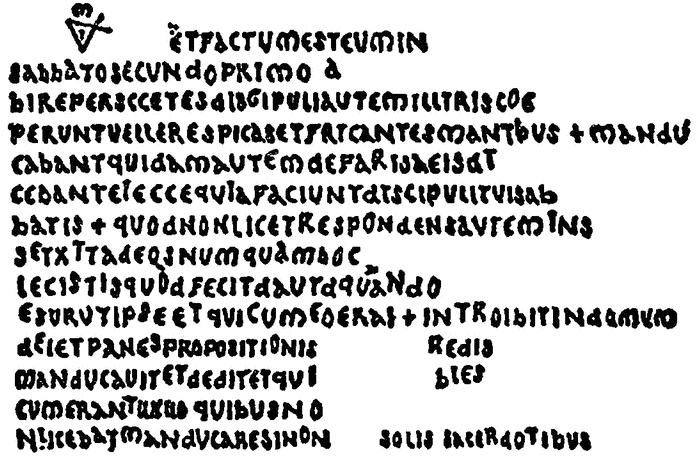 ETFACTUMESTEUMIN
SABBATOSECUNDOPRIMO A
BIREPERSCCETESDISGIPULIAUTEMILLITRISCOE
PERUNTVELLERESPICASETFRICANTESMANTBUS + MANDU
CABANTQUIDAMAUTEMDEFARISAEISDT
CEBANTEIECCEQUIAFACIUNTDISCIPULITUISAB
BATIS + QUODNONLICETRESPONDENSAUTEMINS
SETXTTADEOSNUMQUAMHOC
LECISTISQUODFECITDAUTDQUANDO
ESURUTIPSEETQUICUMEOERAT + INTROIBITINDOMUM
DEIETPANESPROPOSITIONIS REDIS
MANDUCAUITETDEDITETQUI BLES
CUMERANTUXUO QUIBUSNO
NLICEBATMANDUCARESINON SOLIS SACERDOTIBUS